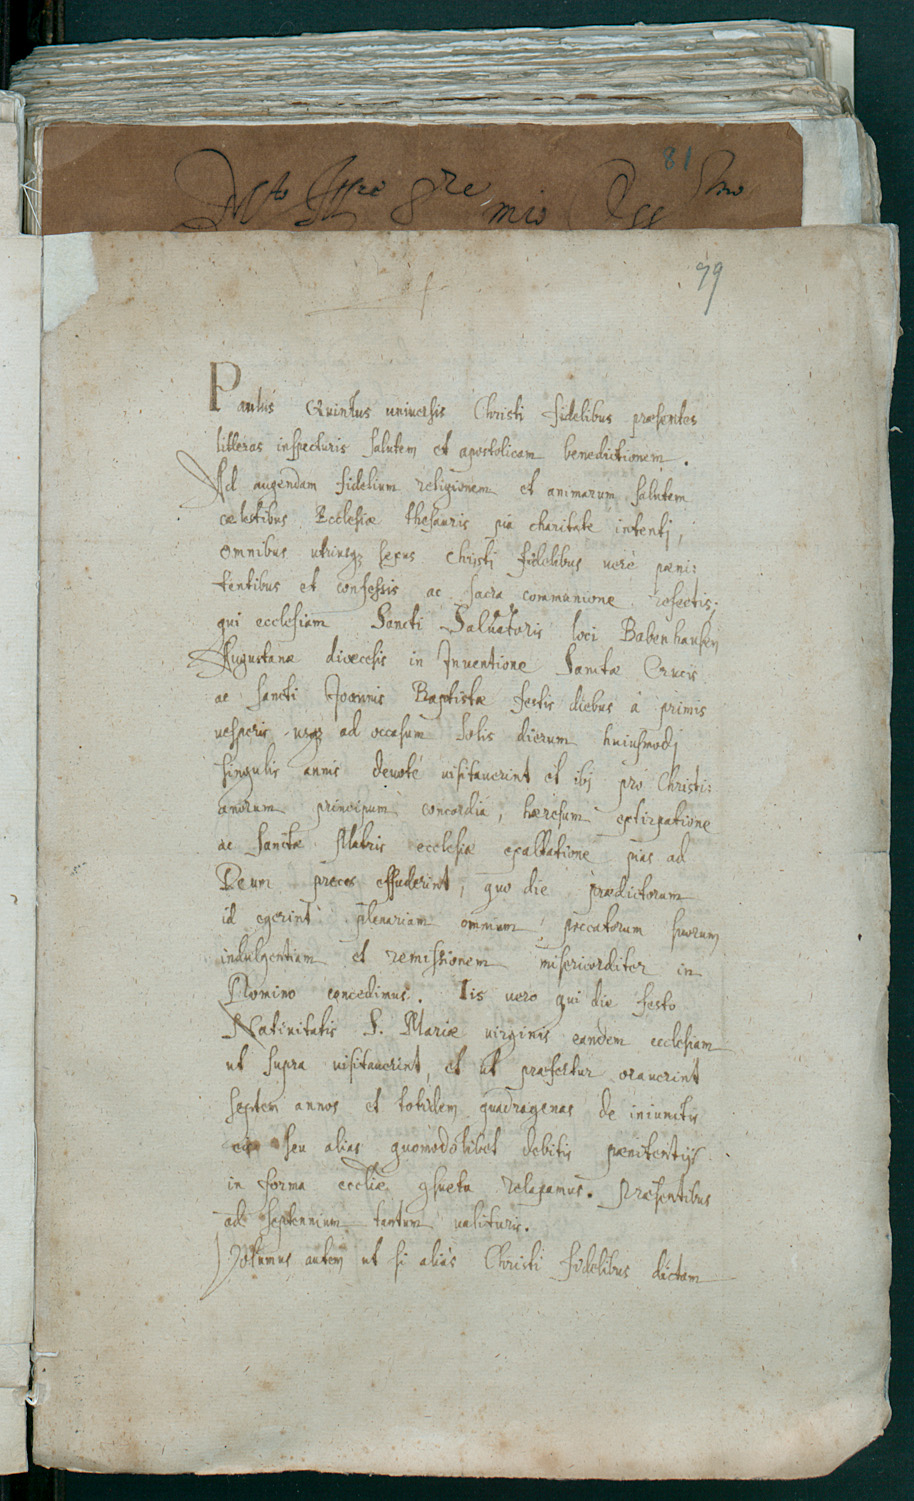 81
99
Paulus Quintus uniuersis Christi fidelibus præsentes
litteras inspecturis salutem et apostolicam benedictionem.
Ad augendam fidelium religionem et animarum salutem
cælestibus Ecclesiæ thesauris pia charitate intentj,
omnibus utriusq; sexus Christj fidelibus uerè pæni:
tentibus et confessis ac sacra communione refectis;
qui ecclesiam Sancti Saluatoris loci Babenhausen
Augustanæ diœcesis in Inuentione Sanctæ Crucis
ac sancti Joannis Baptistæ festis diebus à primis
uesperis usq; ad occasum solis dierum huiusmodj
singulis annis deuotè uisitauerint et ibj pro Christi:
anorum principum concordia, hæresum extirpatione
ac sanctæ Matris ecclesiæ exaltatione pias ad
Deum preces effuderint, quo die prædictorum
id egerint plenariam omnium peccatorum suorum
indulgentiam et remissionem misericorditer in
Domino concedimus. Iis uero qui die festo
Natiuitatis S. Mariæ uirginis eandem ecclesiam
ut supra uisitauerint, et ut præfertur orauerint
septem annos et totidem quadragenas de iniunctis
eis seu alias quomodolibet debitis pænitentijs
in forma eccliæ 9sueta relaxamus. Præsentibus
ad septennium tantum ualituris.
Volumus autem ut si aliàs Christi fidelibus dictam